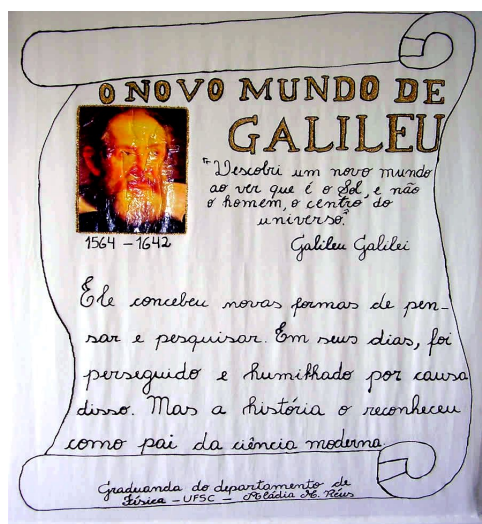 O NOVO MUNDO DE
GALILEU
"Descobri um novo mundo
ao ver que é o Sol, e não
o homem, o centro do
universo."
1564 - 1642
Galileu Galilei
Ele concebeu novas formas de pen-
sar e pesquisar. Em seus dias, foi
perseguido e humilhado por causa
disso. Mas a história o reconheceu
como pai da ciência moderna.
Graduanda do departamento de
Física - UFSC - M. Réus